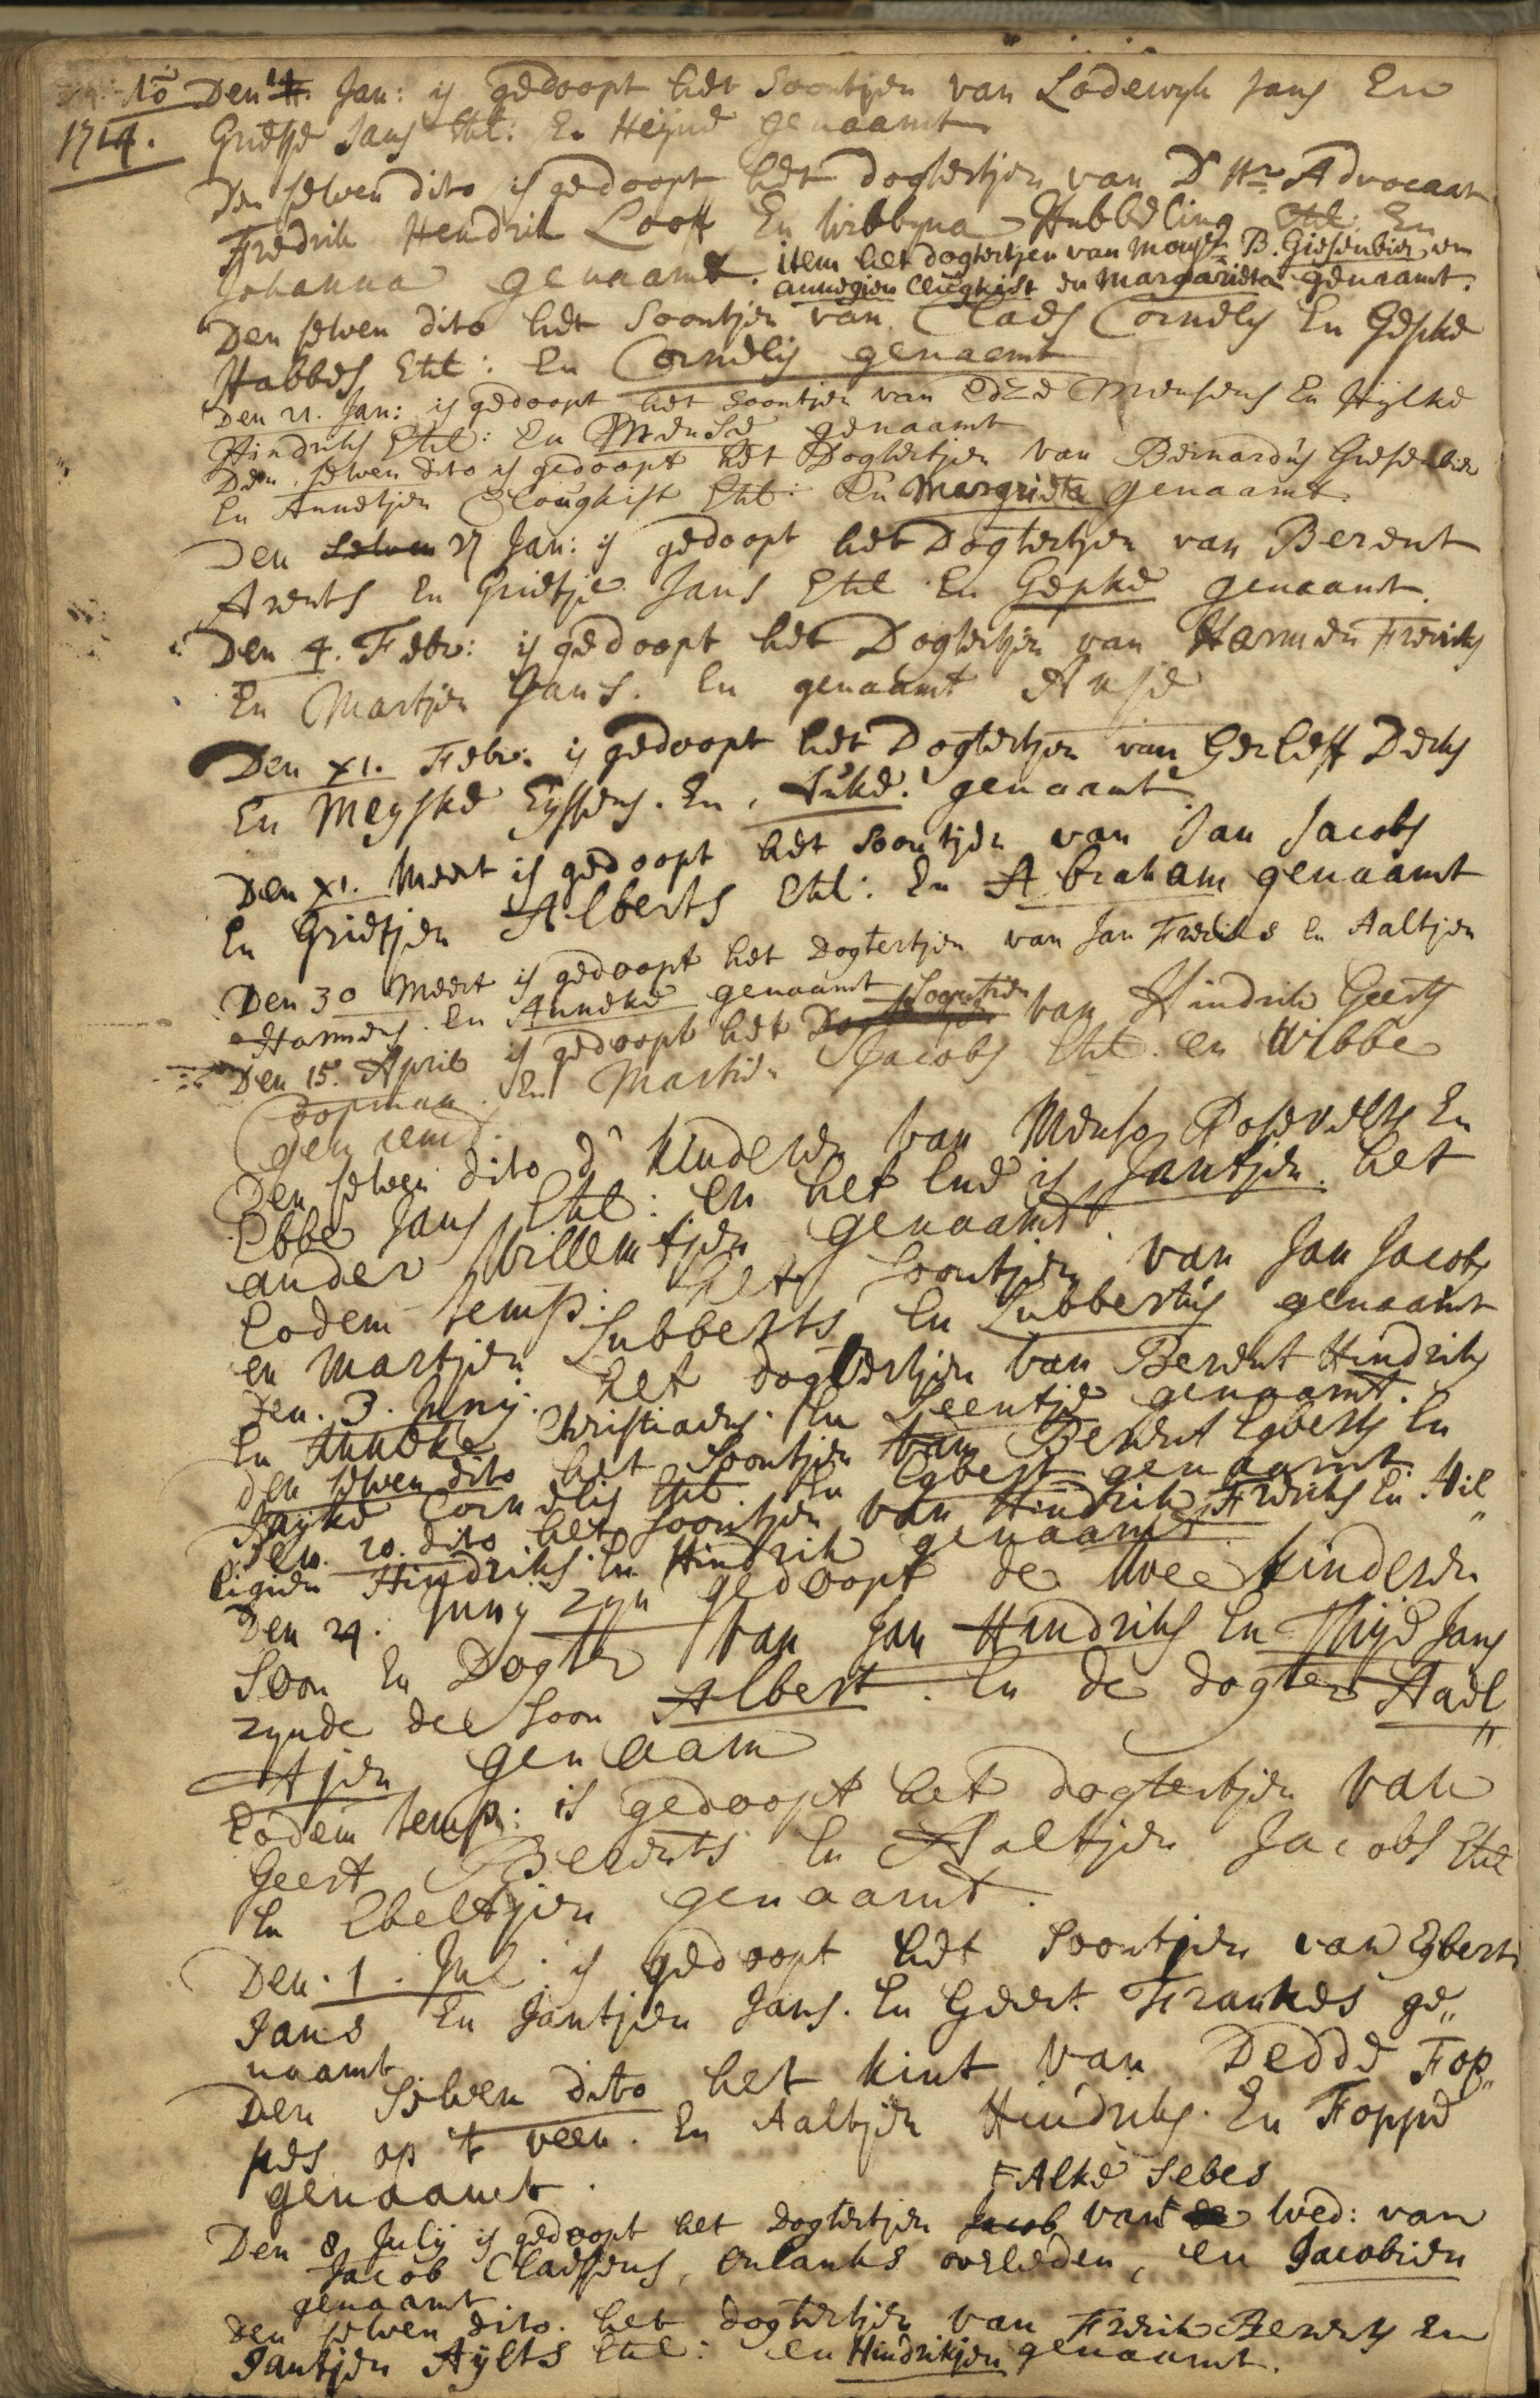 Ao Den 14. Jan: is gedoopt het Soontjen van Lodewyk Jans En
1714. Grietje Jans Ehl: En Heijne genaamt
Den selven dito is gedoopt het dogtertjen van D Hr Advocaat
Fredrik Hendrik Looff En Wibbyna Hubbeling Ehl: En
Johanna genaamt. item het dogtertjen van Monsr B. Giesenbier en
annegien Clughist en Margarieta genaamt.
Den selven dito het Soontjen van Claes Cornelis En Gepke
Habbes Ehl: En Cornelis genaemt
Den 21. Jan: is gedoopt het Soontjen van Edze Mensens En Hylke
Hindriks Ehl: En Mense genaamt
Den selven dito is gedoopt het Dogtertjen van Bernardus Giesenbier
En Annetjen Cloughist Ehl: En Margrieta genaamt.
Den selven 27 Jan: is gedoopt het Dogtertjen van Berent
Arents En Grietje Jans Ehl En Gepke genaamt.
Den 4. Febr: is gedoopt het Dogtertjen van Harmen Freriks
En Martjen Jans. En genaamt Ansje
Den XI. Febr: is gedoopt het Dogtertjen van Gerleff Derks
En Meyske Eyssens. En Auke genaamt
Den XI. Meert is gedoopt het Soontjen van Jan Jacobs
En Grietjen Alberts Ehl: En Abraham genaamt
Den 30 Meert is gedoopt het Dogtertjen van Jan Freriks En Aaltjen
Harmens. En Anneke genaamt
Soontien
Den 15. April is gedoopt het Dogtertjen van Hindrik Geerts
Coopman. En Martien Jacobs Ehl. en Wibbe
genaemt.
Den selven dito d' kinderen van Menso Roseveltt En
Ebbe Jans Ehl: En het Ene is Jantjen. het
ander Willemtjen genaamt.
Eodem temp: het Soontjen van Jan Jacobs
en Martjen Lubberts En Lubbertus genaamt
den. 3. Junij. het dogtertjen van Berent Hindriks
En Anneke Christiaens. En Leentje genaamt.
den selven dito het Soontjen van Berent Egberts En
Trijke Cornelis Ehl. En Egbert genaamt.
den. 10. dito het Soontjen van Hindrik Freriks En Hil"
ligien Hindriks. En Hindrik genaamt
Den 24. Junij zyn gedoopt de twee kinderen
Soon En Dogter van Jan Hindriks En Thije Jans
zynde de Soon Albert. En de dogter Aael"
tjen genaam
Eodem temp: is gedoopt het dogtertjen van
Geert Berents En Aaltjen Jacobs Ehl
En Ebeltjen genaamt.
Den. 1. Jul: is gedoopt het Soontjen van Egbert
Jans En Jantjen Jans. En Geert Frankes ge"
naamt
Den Selven dito het kint van Dedde Fop"
pes op 't veen. En Aaltjen Hindriks. En Foppe
genaamt.
Falke Sebes
Den 8 Julij is gedoopt het Dogtertjen Jacob van de Wed: van
Jacob Claessens, onlanks overleden, en Jacobien
genaamt.
den selven dito. het dogtertjen van Frerik Berents En
Jantjen Aijlts Ehl: en Hindrikjen genaamt.